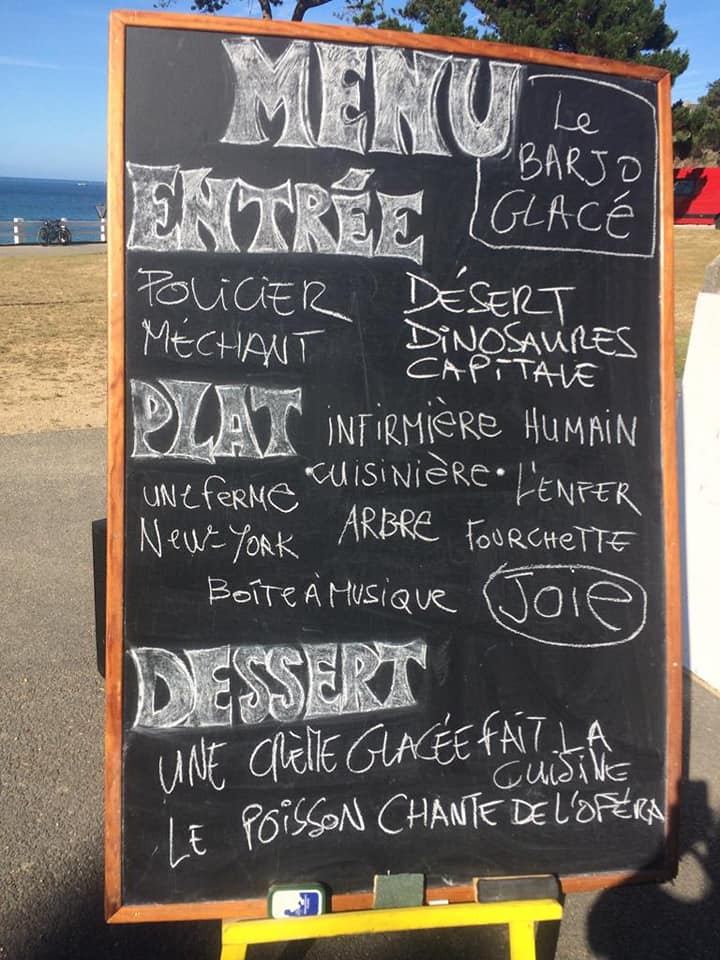 MENU
Le
BARJO
GLACÉ
ENTRÉE
POLICIER
MÉCHANT
DÉSERT
DINOSAURES
CAPITALE
PLAT
INFIRMIÈRE HUMAIN
•CUISINIÈRE•
UNE FERME
L'ENFER
NEW-YORK
ARBRE
FOURCHETTE
BOÎTE À MUSIQUE
JOIE
DESSERT
UNE CRÈME GLACÉE FAIT LA
CUISINE
LE POISSON CHANTE DE L'OPÉRA